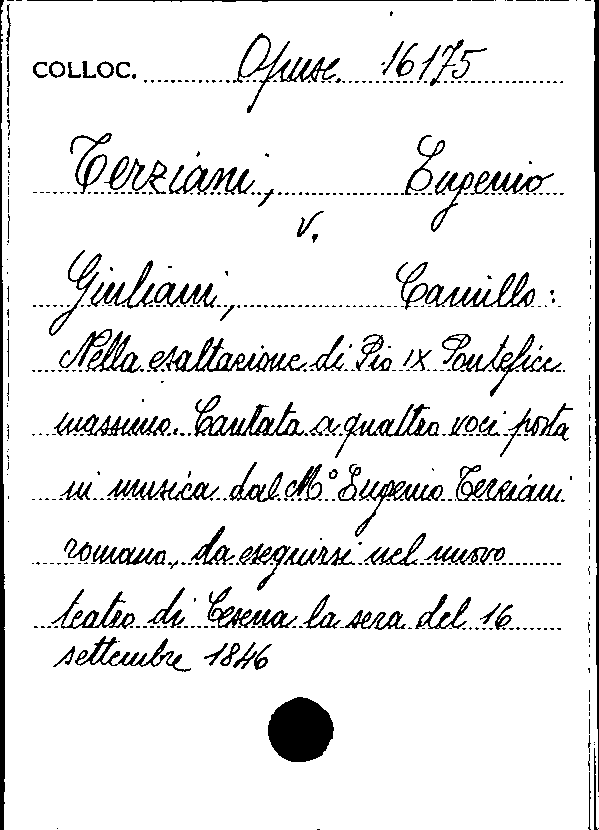 COLLOC. Opusc. 16175
Terziani, Eugenio
v.
Giuliani, Camillo:
Nella esaltazione di Pio IX Pontefice
massimo. Cantata a quattro voci posta
in musica dal M° Eugenio Terziani
romano, da eseguirsi nel nuovo
teatro di Cesena la sera del 16
settembre 1846